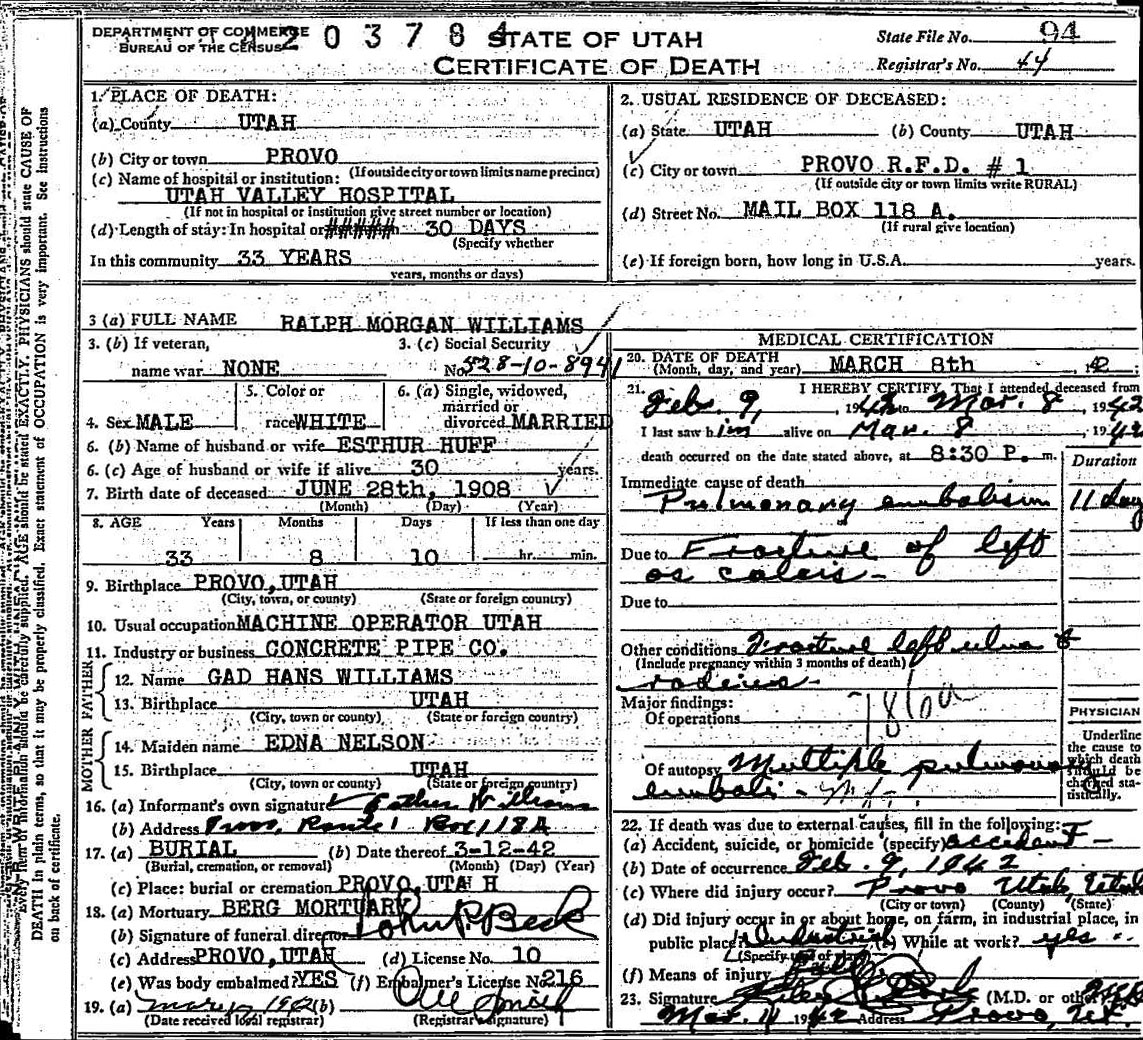 DEPARTMENT OF COMMERCE
BUREAU OF THE CENSUS
2 0 3 7 8 4
STATE OF UTAH
CERTIFICATE OF DEATH
State File No. 94
Registrar's No. 44
1. PLACE OF DEATH:
(a) County UTAH
(b) City or town PROVO
(If outside city or town limits name precinct)
(c) Name of hospital or institution:
UTAH VALLEY HOSPITAL
(If not in hospital or institution give street number or location)
(d) Length of stay: In hospital or ##### 30 DAYS
(Specify whether
In this community 33 YEARS
years, months or days)
2. USUAL RESIDENCE OF DECEASED:
(a) State UTAH (b) County UTAH
(c) City or town PROVO R.F.D. # 1
(If outside city or town limits write RURAL)
(d) Street No. MAIL BOX 118 A.
(If rural give location)
(e) If foreign born, how long in U.S.A. years.
3 (a) FULL NAME RALPH MORGAN WILLIAMS
3. (b) If veteran,
name war NONE
3. (c) Social Security
No. 528-10-8941
4. Sex MALE
5. Color or
race WHITE
6. (a) Single, widowed,
married or
divorced MARRIED
6. (b) Name of husband or wife ESTHUR HUFF
6. (c) Age of husband or wife if alive 30 years.
7. Birth date of deceased JUNE 28th, 1908
(Month) (Day) (Year)
8. AGE Years Months Days If less than one day
33 8 10 hr. min.
9. Birthplace PROVO, UTAH
(City, town, or county) (State or foreign country)
10. Usual occupation MACHINE OPERATOR UTAH
11. Industry or business CONCRETE PIPE CO.
FATHER
12. Name GAD HANS WILLIAMS
13. Birthplace UTAH
(City, town or county) (State or foreign country)
MOTHER
14. Maiden name EDNA NELSON
15. Birthplace UTAH
(City, town or county) (State or foreign country)
16. (a) Informant's own signature Esther Williams
(b) Address Prov. Route 1 Box 118A
17. (a) BURIAL (b) Date thereof 3-12-42
(Burial, cremation, or removal) (Month) (Day) (Year)
(c) Place: burial or cremation PROVO, UTAH
18. (a) Mortuary BERG MORTUARY
(b) Signature of funeral director John P. Beck
(c) Address PROVO, UTAH (d) License No. 10
(e) Was body embalmed? YES (f) Embalmer's License No. 216
19. (a) (b)
(Date received local registrar) (Registrar's signature)
MEDICAL CERTIFICATION
20. DATE OF DEATH
(Month, day, and year) MARCH 8th , 1942
21. I HEREBY CERTIFY, That I attended deceased from
Feb. 9, 1942 to Mar. 8, 1942
I last saw him alive on Mar. 8, 1942
death occurred on the date stated above, at 8:30 P. m.
Duration
Immediate cause of death
Pulmonary embolism 11 day
Due to Fracture of left
os calcis -
Due to
Other conditions Fracture left ulna &
(Include pregnancy within 3 months of death)
radius -
Major findings:
Of operations
Of autopsy Multiple pulmonary
emboli -
PHYSICIAN
Underline the cause to which death should be charged statistically.
22. If death was due to external causes, fill in the following:
(a) Accident, suicide, or homicide (specify) accident -
(b) Date of occurrence Feb. 9, 1942
(c) Where did injury occur? Provo Utah Utah
(City or town) (County) (State)
(d) Did injury occur in or about home, on farm, in industrial place, in
public place? Industrial (e) While at work? yes
(Specify type of place)
(f) Means of injury Fall
23. Signature (M.D. or other)
Mar. 11 1942 Address Provo, Ut.
DEATH in plain terms, so that it may be properly classified. Exact statement of OCCUPATION is very important. See instructions
on back of certificate.
AGE should be stated EXACTLY. PHYSICIANS should state CAUSE OF